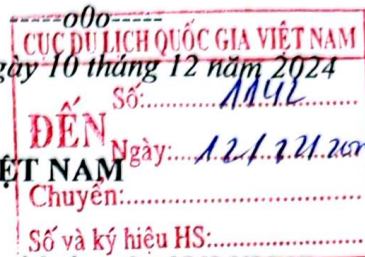 -----o0o-----
CỤC DU LỊCH QUỐC GIA VIỆT NAM
gày 10 tháng 12 năm 2024
Số:
ĐẾN
Ngày:
ỆT NAM
Chuyển:
Số và ký hiệu HS: